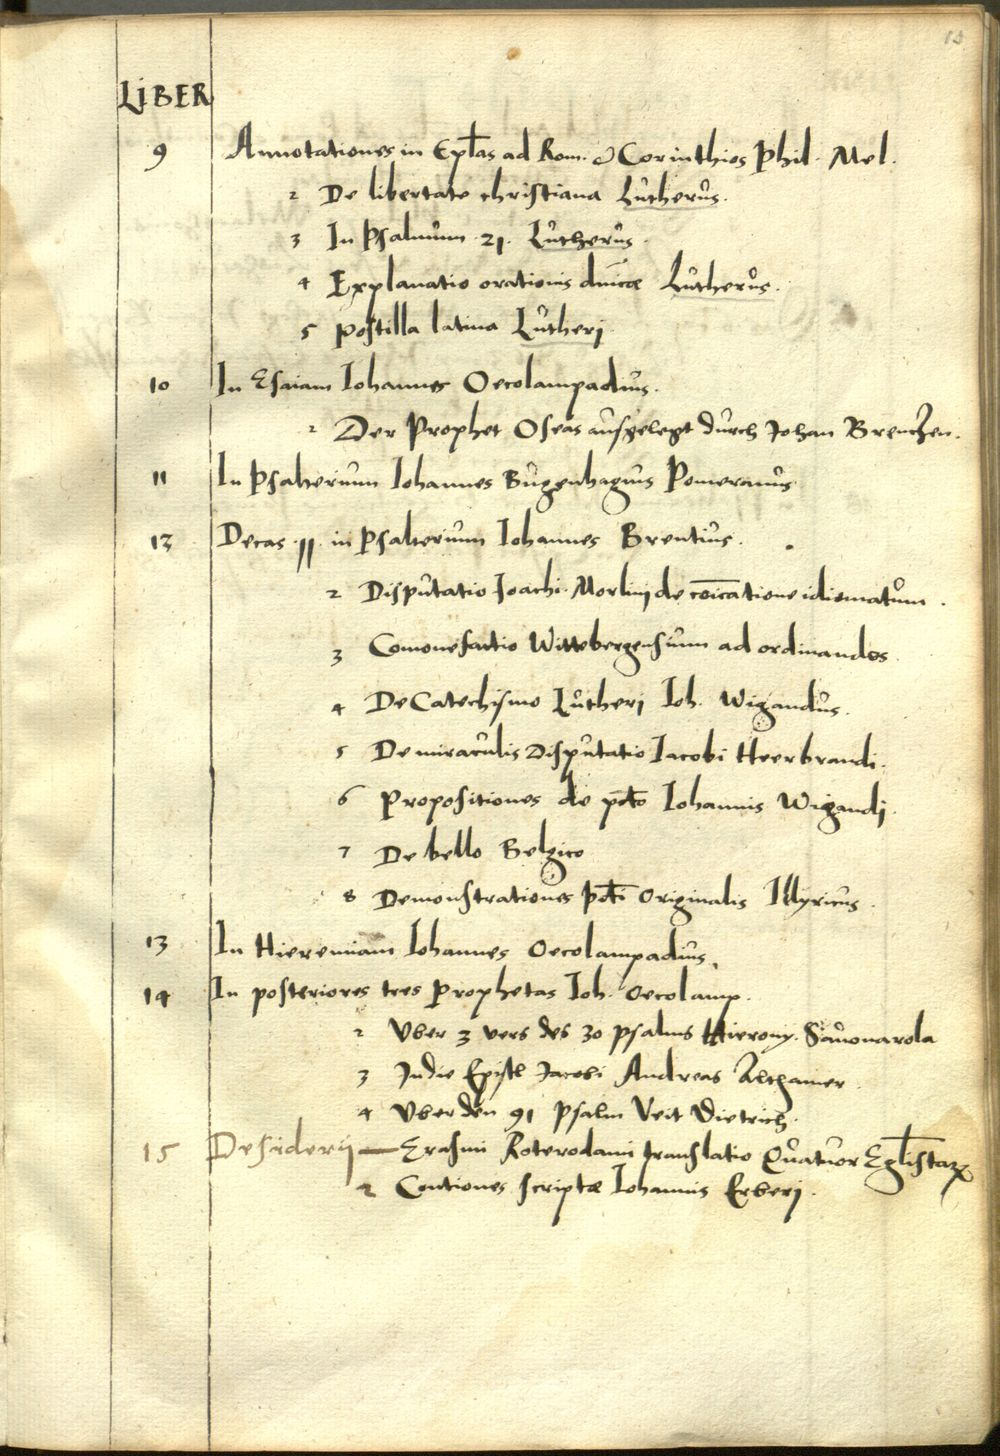 LIBER
9 Annotationes in Ep̄las ad Rom. & Corinthios Phil. Mel.
2 De libertate christiana Lutherus.
3 In Psalmum .21. Lutherus.
4 Explanatio orationis dn̄icæ Lutherus.
5 Postilla latina Lutherj
10 In Esaiam Iohannes Oecolampadius.
2 Der Prophet Oseas ausgelegt durch Johan Brentzen.
11 In Psalterium Iohannes Bugenhagius Pomeranus
12 Decas .II. in Psalterium Iohannes Brentius.
2 Disputatio Joachi. Morlinj de cōicatione idiomatum.
3 Comonefactio Wittebergensium ad ordinandos.
4 De Catechismo Lutherj Ioh. Wigandus.
5 De miraculis Disputatio Iacobi Heerbrandi.
6 Propositiones de pc̄to Iohannis Wigandj.
7 De bello Belgico
8 Demonstrationes pc̄ti Originalis Illyricus.
13 In Hieremiam Iohannes Oecolampadius.
14 In posteriores tres Prophetas Ioh. Oecolamp.
2 Vber 3 vers des 30 psalms Hierony. Sauonarola
3 In die Epistl Jacobi Andreas Althamer.
4 Vber den 91 Psalm Veit Dietrich.
15 Desiderij — Erasmi Roterodami translatio Quatuor Eglistaꝝ
2 Contiones scriptæ Iohannis Erberj.